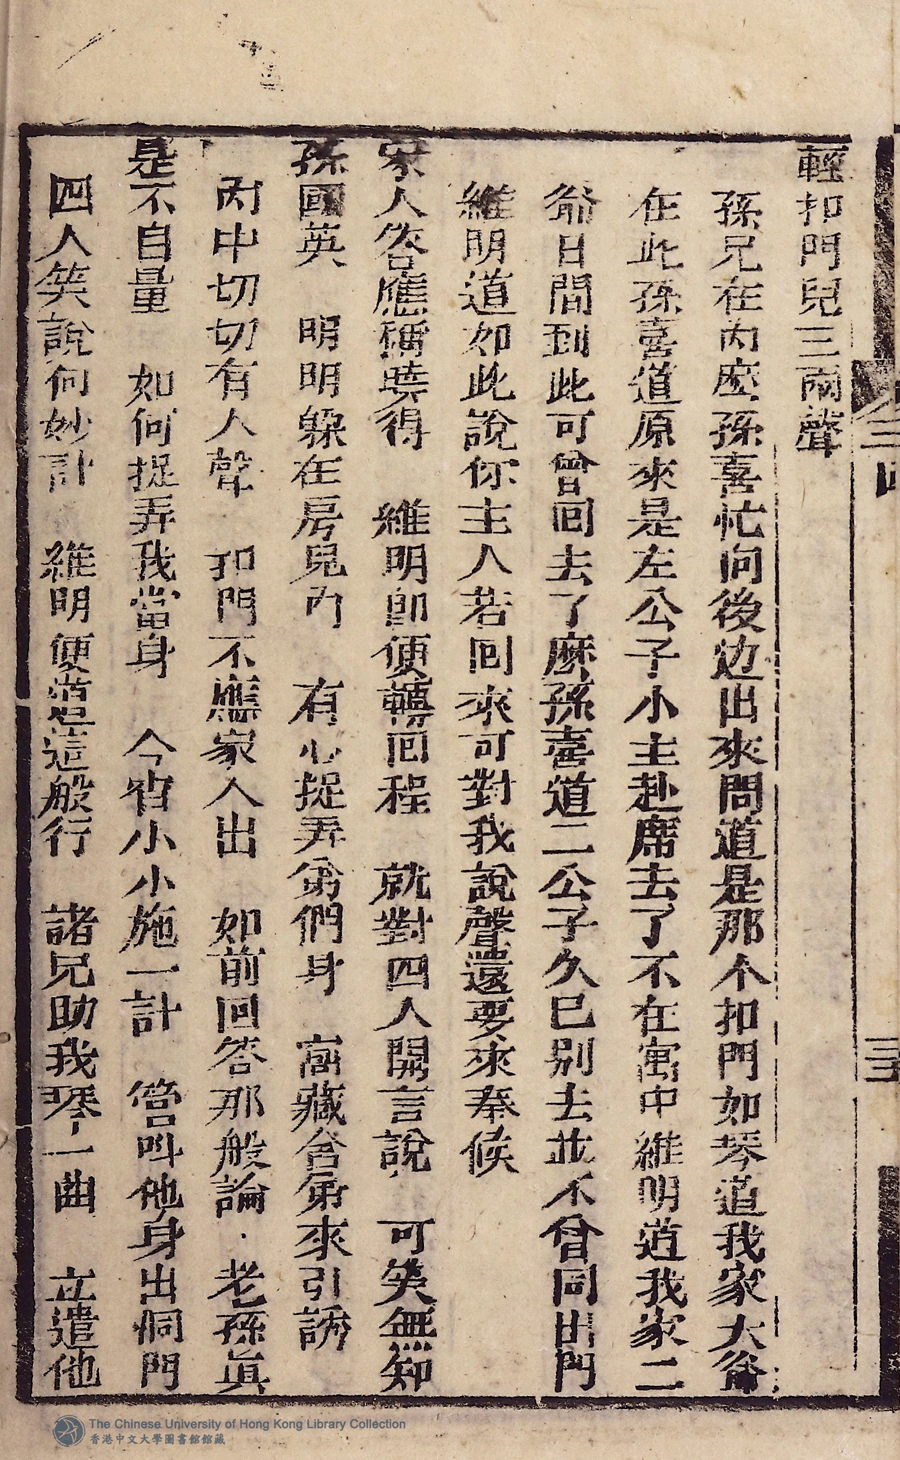 輕扣門兒三兩聲
孫兄在內麽孫喜忙向後边出來問道是那个扣門如琴道我家大爺
在此孫喜道原來是左公子小主赴席去了不在寓中維明道我家二
爺日間到此可曾回去了麽孫喜道二公子久已别去並不曾同出門
維明道如此說你主人若回來可對我說聲還要來奉候
家人答應稱曉得　維明卽便轉回程　就對四人開言說　可笑無知
孫國英　明明躲在房兒內　有心捉弄弟們身　窩藏舍弟來引誘
內中切切有人聲　扣門不應家人出　如前回答那般論　老孫眞
是不自量　如何捉弄我當身　今宵小小施一計　管叫他身出洞門
四人笑說何妙計　維明便道這般行　諸兄助我琴一曲　立遣他
三
三十
The Chinese University of Hong Kong Library Collection
香港中文大學圖書館館藏